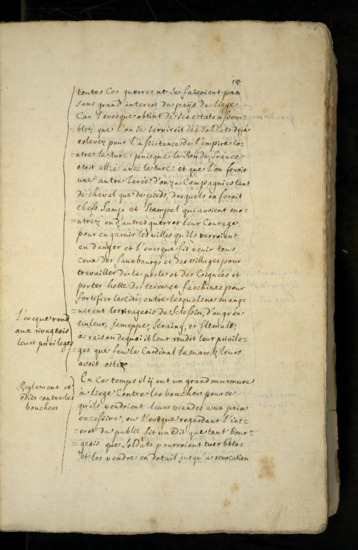 toutes ces guerres ne se faisoient pas
sans grand interest du païs de liege
Car l'evesque obtint de ses estats assem-
blez que l'on se serviroit des soldats deja
eslevez pour l'assistance de l'empire co-
ntre le turc, puisque le Roy de france
estoit allié avec le turc: et que l'on feroit
une autre levée d'onze compagnies tant
de cheval que de pieds, desquels on feroit
chefs et Stampel qui avoient mo-
ntrez en d'autres guerres leur courage
pour en garnir les villes qu'ils verroient
en danger et l'evesque fit venir tous
ceux des fauxbourgs et des villages pour
travailler de la pelle et des Coignées et
porter hotte de terre et faschines pour
fortifier la cité; entre lesquels ne manq-
uerent les rivageois de Sclessin, d'angrée
tinleur, Jemeppe, Seraing, et
a raison de quoi il leur rendit leur privile-
ges que feu le Cardinal la marck leurs
avoit ostez
L'evesque rend
aux rivageois
leurs privileges
En ces temps il y eut un grand murmure
a liege Contre les bouchers pource
qu'ils vendoient leurs viandes a un prix
excessive, ou l'evesque regardant l'int-
erest du public fit un edit que tant bour-
geois que Soldats pourroient tuer bestes
et les vendre en detail jusqu'a revocation
Reglement et
edits contre les
bouchers